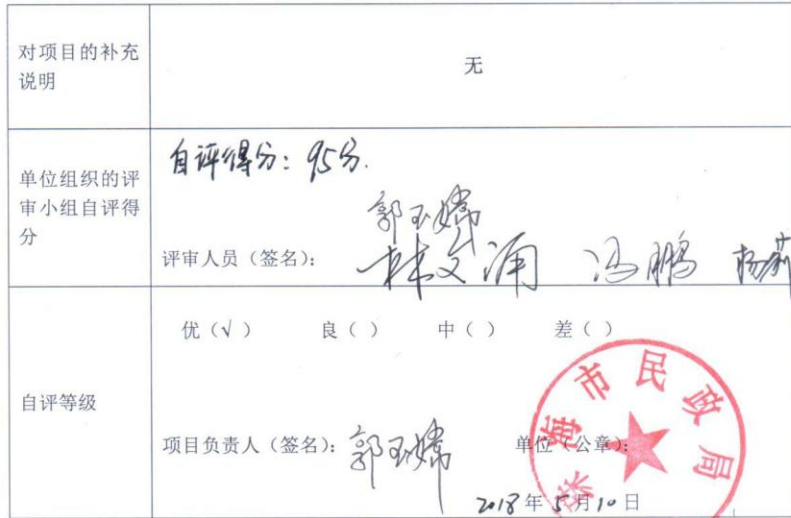 对项目的补充
说明
无
单位组织的评
审小组自评得
分
自评得分：95分.
郭玉嫦
评审人员（签名）：
林文涌 冯鹏 杨莉
自评等级
优（√） 良（ ） 中（ ） 差（ ）
项目负责人（签名）：郭玉嫦 单位（公章）：
珠海市民政局
2018年5月10日